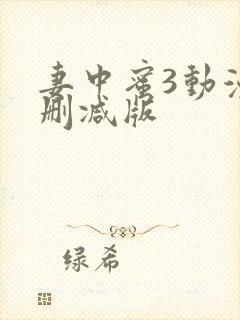 妻中蜜3動
删减版
绿希